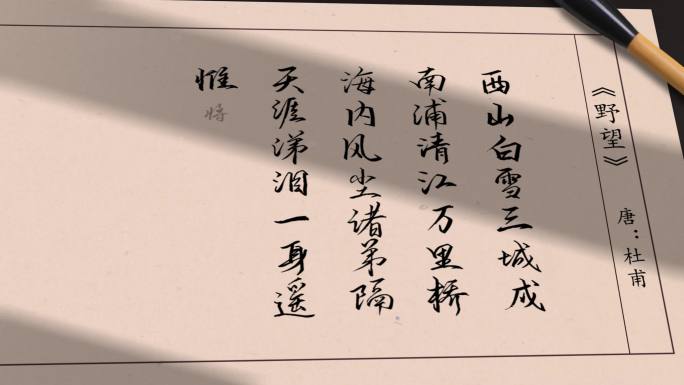 《野望》
唐：杜甫
西山白雪三城成
南浦清江万里桥
海内风尘诸弟隔
天涯涕泪一身遥
惟将